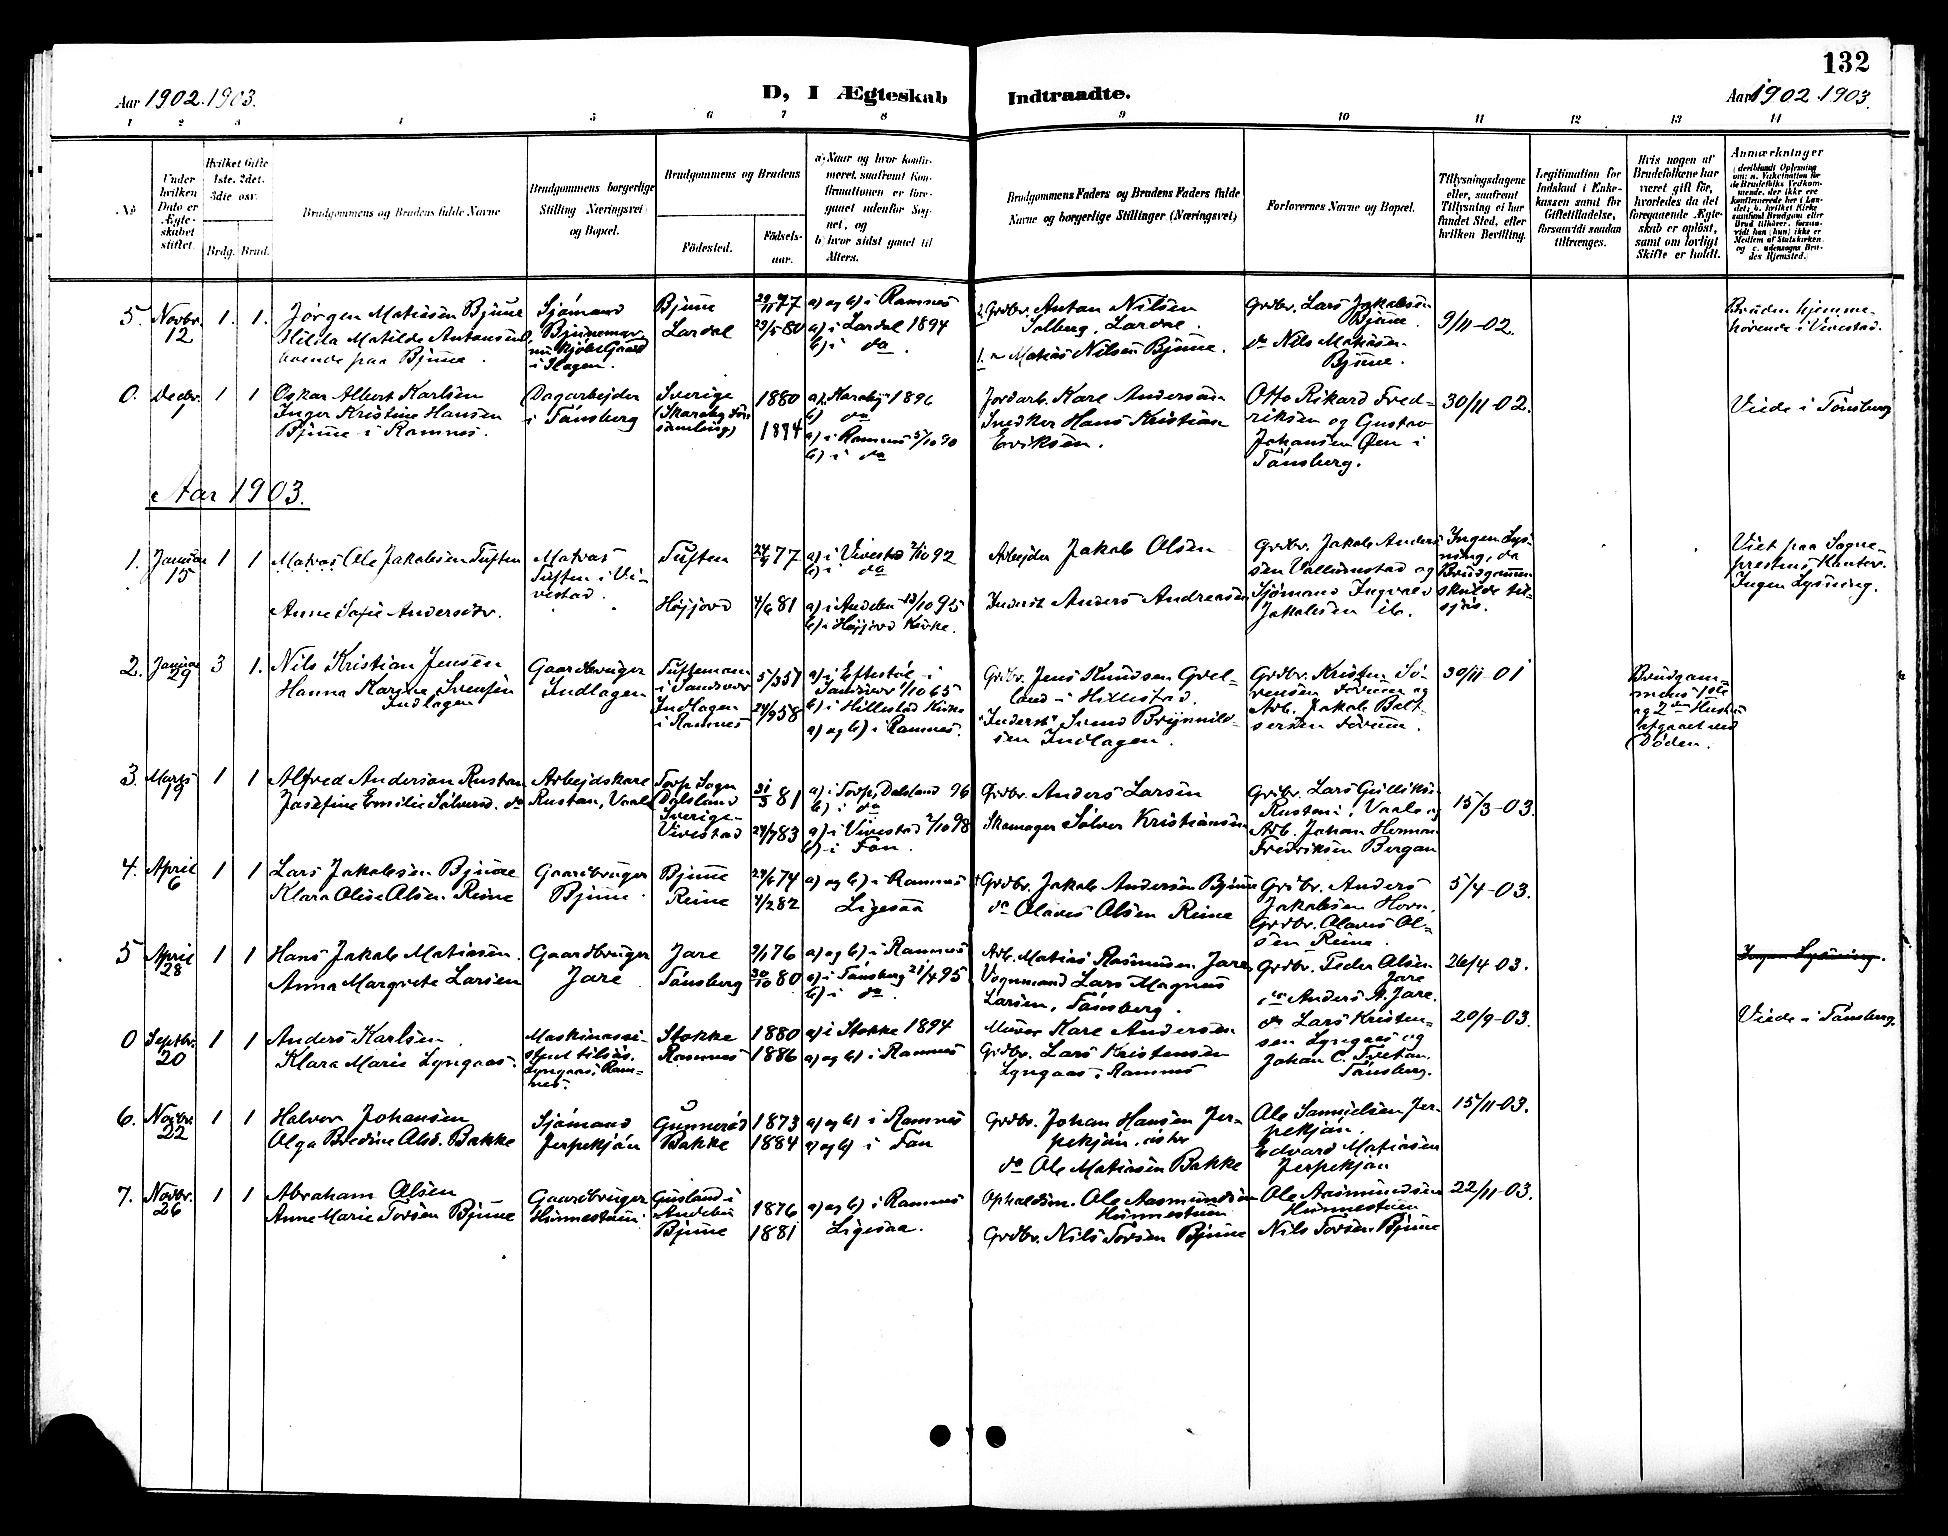 132
Aar 1902. 1903.
D, I Ægteskab Indtraadte.
Aar 1902. 1903.
1 2 3 4 5 6 7 8 9 10 11 12 13 14
No
Under hvilken Dato er Ægteskabet stiftet.
Hvilket Gifte 1ste. 2det. 3dte osv.
Brdg. Brud.
Brudgommens og Brudens fulde Navne
Brudgommens borgerlige Stilling Næringsvei og Bopæl.
Brudgommens og Brudens
Fødested.
Fødsels-aar.
a) Naar og hvor konfirmeret, saafremt Konfirmationen er foregaaet udenfor Sognet, og
b) hvor sidst gaaet til Alters.
Brudgommens Faders og Brudens Faders fulde Navne og borgerlige Stillinger (Næringsvei)
Forlovernes Navne og Bopæl.
Tillysningsdagene eller, saafremt Tillysning ei har fundet Sted, efter hvilken Bevilling.
Legitimation for Indskud i Enkekassen samt for Giftetilladelse, forsaavidt saadan tiltrænges.
Hvis nogen af Brudefolkene har været gift før, hvorledes da det foregaaende Ægteskab er opløst, samt om lovligt Skifte er holdt.
Anmærkninger
5. Novbr. 12 1. 1.
Jørgen Matiasen Bjune
Hilda Matilde Antonsen
Sjømand
i Slagen.
Bjune
Lardal
29/11 77
23/5 80
a) og b) i Ramnes
a) i Lardal 1894
b) i do.
2. Grdbr. Anton Nilsen
Solberg, Lardal.
1. " Matias Nilsen Bjune.
Grdbr. Lars Jakobsen
Bjune.
do Nils Matiasen
Bjune.
9/11-02.
Bruden hjemme-
hørende i Vivestad.
0. Decbr. 1 1 1
Oskar Albert Karlsen
Inger Kristine Hansen
Bjune i Ramnes.
Dagarbejder
i Tønsberg
Sverige
1880
1884
1896
b) do
a) i Ramnes 5/10 90
b) i do
Jordarb. Kare Anderson
Snedker Hans Kristian
Eriksen.
Otto Rikard Fred-
riksen og Gustav
Johansen Øen i
Tønsberg.
30/11-02.
Viede i Tønsberg
Aar 1903.
1. Januar 15 1 1
Matias Ole Jakobsen Tuften
Anne Sofie Andersdtr.
Matros
Tuften i Vi-
vestad.
Tuften
Høyjord
77
4/6 81
a) i Vivestad 2/10 92
b) i do
95
b) i Høyjord Kirke.
Arbejder Jakob Olsen
Inderst Anders Andreasen
Grdbr. Jakob Ander-
sen Vallumstad og
Sjømand Ingvald
Jakobsen ib.
Ingen Lys-
ning, da
Brudgommen
skulde til-
sjøs.
Viet paa Sogne-
prestens Kontor.
Ingen Lysning.
2. Januar 29 3 1.
Nils Kristian Jensen
Hanna Karine Svensen
Indlagen
Gaardbruger
Indlagen
i Sandsvær
Indlagen
i Ramnes
5/3 51
24/9 58
a) i Efteløt i
Sandsvær 1/10 65
b) i Hillestad Kirke
a) og b) i Ramnes.
Grdbr. Jens Knudsen Grel-
land i Hillestad.
"Inderst" Svend Brynnild-
sen Indlagen.
Grdbr. Kristen Sø-
rensen Førum og
Arb. Jakob Balt-
sersen Førum.
30/11-01
Brudgom-
mens 1ste
og 2den Hustru
afgaaet ved
Døden.
3. Marts 19 1 1
Alfred Anderson Rustan
Josefine Emilie Sølversd. do
Arbejdskare
Rustan, Vaale
Torp Sogn
Dalsland
Sverige
Vivestad
31/3 81
24/7 83
a) i Torp, Dalsland 96
b) i do
a) i Vivestad 2/10 98
b) i Fon.
Grdbr. Anders Larsen
Skomager Sølver Kristiansen
Grdbr. Lars Gulliksen
Rustan i Vaale og
Arb. Johan Herman
Fredriksen Bergan
15/3-03.
4. April 6 1 1
Lars Jakobsen Bjune
Klara Olise Olsen Reine
Gaardbruger
Bjune
Bjune
Reine
29/6 74
4/2 82
a) og b) i Ramnes
Ligesaa
Grdbr. Jakob Andersen Bjune
do Olaves Olsen Reine
Grdbr. Anders
Jakobsen Horn,
Grdbr. Olaves Ol-
sen Reine.
5/4-03.
5 April 28 1 1
Hans Jakob Matiasen.
Anna Margrete Larsen
Gaardbruger
Jare
Jare
Tønsberg
9/1 76
30/10 80
a) og b) i Ramnes
a) i Tønsberg 21/4 95
b) i do.
Arb. Matias Rasmusen Jare
Vognmand Lars Magnus
Larsen, Tønsberg.
Grdbr. Peder Olsen
Jare
do Anders A. Jare.
26/4-03.
Ingen Lysning.
0 Septbr. 20 1 1
Anders Karlsen
Klara Marie Lyngaas.
Maskinassi-
stent tilsjøs.
Lyngaas, Ram-
nes.
Stokke
Ramnes
1880
1886
a) i Stokke 1894
a) og b) i Ramnes
Murer Kare Andersen
Grdbr. Lars Kristensen
Lyngaas, Ramnes
do Lars Kristen-
sen Lyngaas og
Johan C. Tvetan,
Tønsberg.
20/9-03.
Viede i Tønsberg.
6. Novbr. 22 1 1
Halvor Johansen
Olga Bredine Olsd. Bakke
Sjømand
Jerpekjøn
Gunnerød
Bakke
1873
1884
a) og b) i Ramnes
a) og b) i Fon
Grdbr. Johan Hansen Jer-
pekjøn,
do Ole Matiasen Bakke
Ole Samuelsen Jer-
pekjøn,
Edvard Matiasen
Jerpekjøn
15/11-03.
7. Novbr. 26 1 1
Abraham Olsen
Anne Marie Torsen Bjune
Gaardbruger
Himmestuen.
Gusland i
Andebu
Bjune
1876
1881
a) og b) i Ramnes
Ligesaa.
Opholdsm. Ole Aasmundsen
Himmestuen
Grdbr. Nils Torsen Bjune
Ole Aasmundsen
Himmestuen
Nils Torsen Bjune
22/11-03.